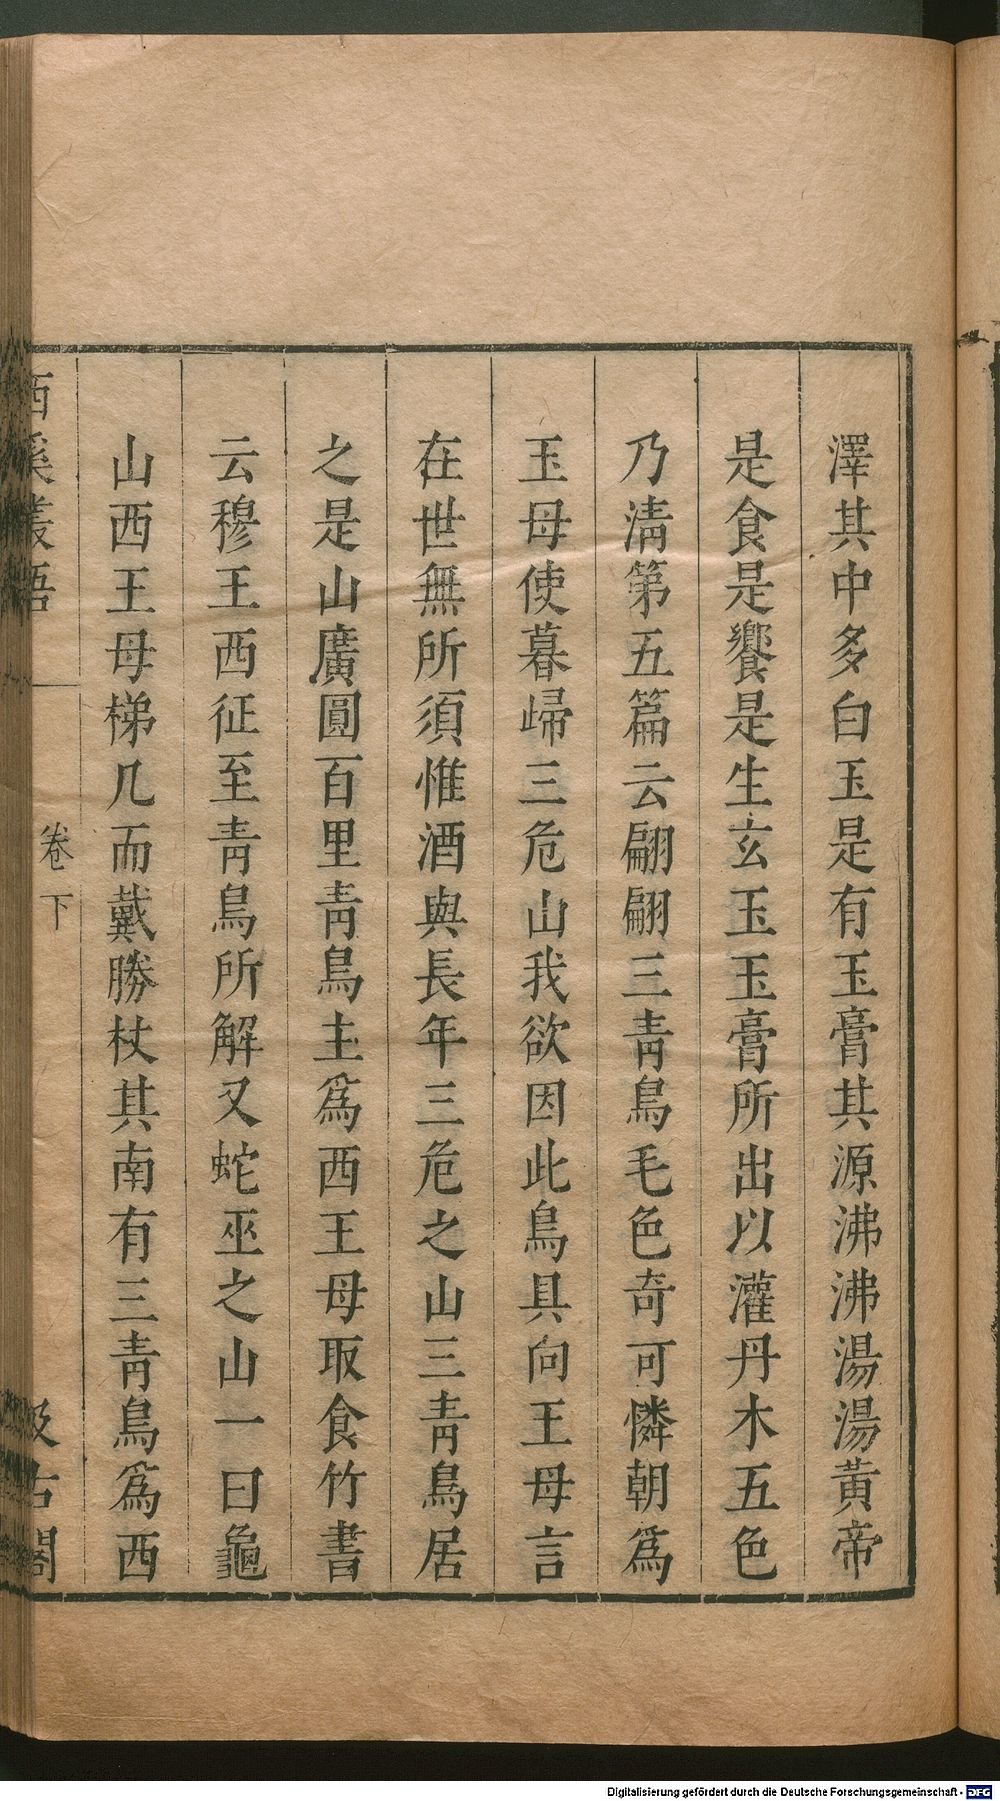 澤其中多白玉是有玉膏其源沸沸湯湯黃帝
是食是饗是生玄玉玉膏所出以灌丹木五色
乃淸第五篇云翩翩三靑鳥毛色奇可憐朝爲
玉母使暮歸三危山我欲因此鳥具向王母言
在世無所須惟酒與長年三危之山三靑鳥居
之是山廣圓百里靑鳥主爲西王母取食竹書
云穆王西征至靑鳥所解又蛇巫之山一曰龜
山西王母梯几而戴勝杖其南有三靑鳥爲西
西溪叢語
卷下
汲古閣
Digitalisierung gefördert durch die Deutsche Forschungsgemeinschaft - DFG